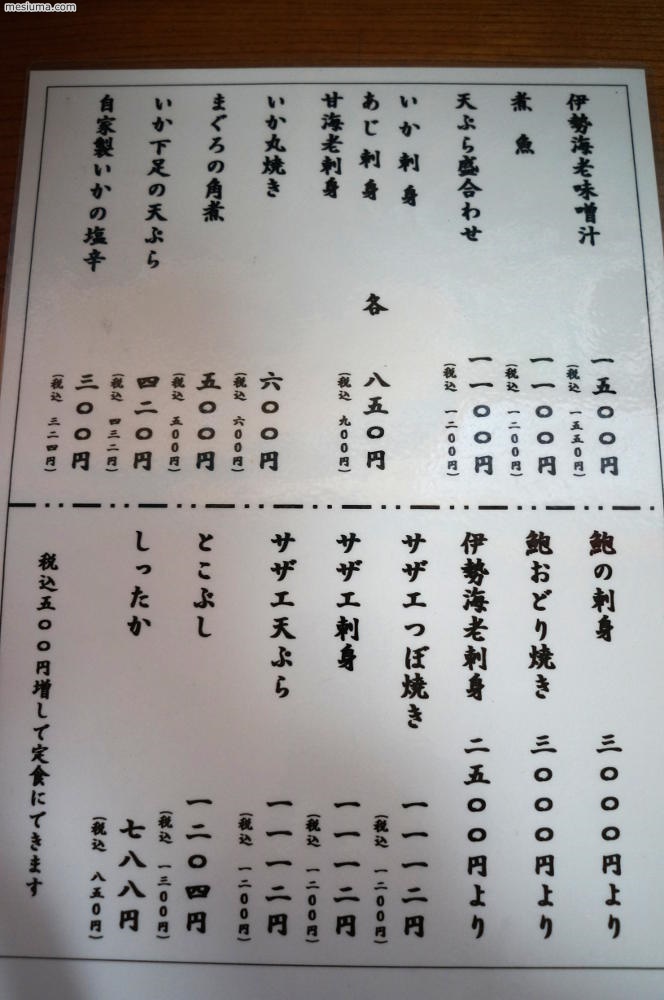 mesiuma.com
伊勢海老味噌汁 一五〇〇円
(税込 一五五〇円)
煮魚 一一〇〇円
(税込 一二〇〇円)
天ぷら盛合わせ 一一〇〇円
(税込 一二〇〇円)
いか刺身
あじ刺身 各 八五〇円
甘海老刺身
(税込 九〇〇円)
いか丸焼き 六〇〇円
(税込 六〇〇円)
まぐろの角煮 五〇〇円
(税込 五〇〇円)
いか下足の天ぷら 四二〇円
(税込 四三二円)
自家製いかの塩辛 三〇〇円
(税込 三二四円)
鮑の刺身 三〇〇〇円より
鮑おどり焼き 三〇〇〇円より
伊勢海老刺身 二五〇〇円より
サザエつぼ焼き 一一一二円
(税込 一二〇〇円)
サザエ刺身 一一一二円
(税込 一二〇〇円)
サザエ天ぷら 一一一二円
(税込 一二〇〇円)
とこぶし 一二〇四円
(税込 一三〇〇円)
しったか 七八八円
(税込 八五〇円)
税込五〇〇円増しで定食にできます